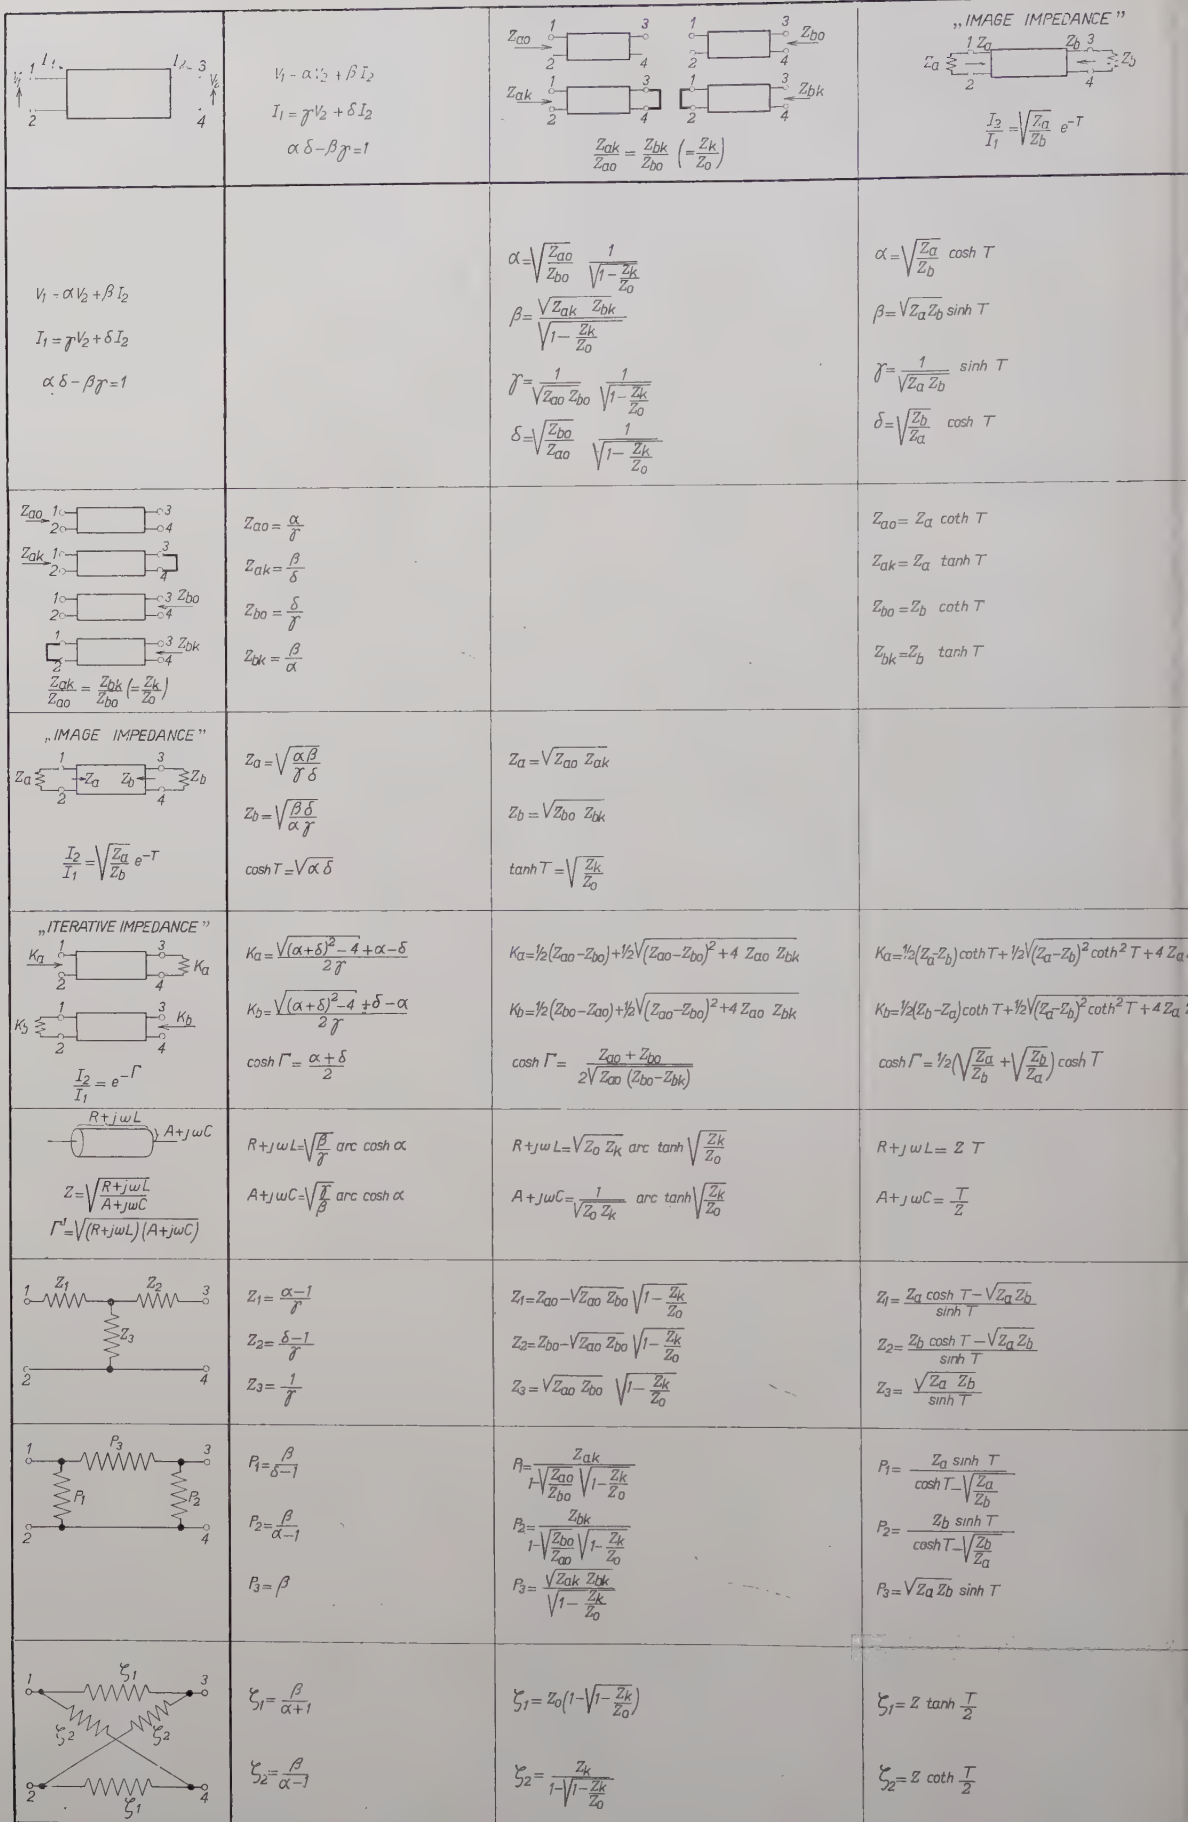 I₁ I₂ 3
V₁ 1 V₂
2 4
V₁ = αV₂ + βI₂
I₁ = γV₂ + δI₂
αδ − βγ = 1
Zao 1 3 1 3 Zbo
2 4 2 4
Zak 1 3 1 3 Zbk
2 4 2 4
Zak/Zao = Zbk/Zbo (= Zk/Zo)
„IMAGE IMPEDANCE”
1 Za Zb 3
Za Zb
2 4
I₂/I₁ = √(Za/Zb) e^−T
V₁ = αV₂ + βI₂
I₁ = γV₂ + δI₂
αδ − βγ = 1
α = √(Zao/Zbo) 1/√(1 − Zk/Zo)
β = √(Zak Zbk)/√(1 − Zk/Zo)
γ = 1/√(Zao Zbo) 1/√(1 − Zk/Zo)
δ = √(Zbo/Zao) 1/√(1 − Zk/Zo)
α = √(Za/Zb) cosh T
β = √(Za Zb) sinh T
γ = 1/√(Za Zb) sinh T
δ = √(Zb/Za) cosh T
Zao 1 3
2 4
Zak 1 3
2 4
1 3 Zbo
2 4
1 3 Zbk
2 4
Zak/Zao = Zbk/Zbo (= Zk/Zo)
Zao = α/γ
Zak = β/δ
Zbo = δ/γ
Zbk = β/α
Zao = Za coth T
Zak = Za tanh T
Zbo = Zb coth T
Zbk = Zb tanh T
„IMAGE IMPEDANCE”
1 3
Za Za Zb Zb
2 4
I₂/I₁ = √(Za/Zb) e^−T
Za = √(αβ/γδ)
Zb = √(βδ/αγ)
cosh T = √(αδ)
Za = √(Zao Zak)
Zb = √(Zbo Zbk)
tanh T = √(Zk/Zo)
„ITERATIVE IMPEDANCE”
Ka 1 3 Ka
2 4
Kb 1 3 Kb
2 4
I₂/I₁ = e^−Γ
Ka = (√((α+δ)² − 4) + α − δ)/2γ
Kb = (√((α+δ)² − 4) + δ − α)/2γ
cosh Γ = (α + δ)/2
Ka = ½(Zao − Zbo) + ½√((Zao − Zbo)² + 4 Zao Zbk)
Kb = ½(Zbo − Zao) + ½√((Zao − Zbo)² + 4 Zao Zbk)
cosh Γ = (Zao + Zbo)/(2√(Zao (Zbo − Zbk)))
Ka = ½(Za − Zb) coth T + ½√((Za − Zb)² coth² T + 4 Za
Kb = ½(Zb − Za) coth T + ½√((Za − Zb)² coth² T + 4 Za
cosh Γ = ½(√(Za/Zb) + √(Zb/Za)) cosh T
R + jωL
A + jωC
Z = √((R + jωL)/(A + jωC))
Γ = √((R + jωL)(A + jωC))
R + jωL = √(β/γ) arc cosh α
A + jωC = √(γ/β) arc cosh α
R + jωL = √(Zo Zk) arc tanh √(Zk/Zo)
A + jωC = 1/√(Zo Zk) arc tanh √(Zk/Zo)
R + jωL = Z T
A + jωC = T/Z
1 Z₁ Z₂ 3
Z₃
2 4
Z₁ = (α−1)/γ
Z₂ = (δ−1)/γ
Z₃ = 1/γ
Z₁ = Zao − √(Zao Zbo) √(1 − Zk/Zo)
Z₂ = Zbo − √(Zao Zbo) √(1 − Zk/Zo)
Z₃ = √(Zao Zbo) √(1 − Zk/Zo)
Z₁ = (Za cosh T − √(Za Zb))/sinh T
Z₂ = (Zb cosh T − √(Za Zb))/sinh T
Z₃ = √(Za Zb)/sinh T
1 P₃ 3
P₁ P₂
2 4
P₁ = β/(δ−1)
P₂ = β/(α−1)
P₃ = β
P₁ = Zak/(1 − √(Zao/Zbo) √(1 − Zk/Zo))
P₂ = Zbk/(1 − √(Zbo/Zao) √(1 − Zk/Zo))
P₃ = √(Zak Zbk)/√(1 − Zk/Zo)
P₁ = Za sinh T/(cosh T − √(Za/Zb))
P₂ = Zb sinh T/(cosh T − √(Zb/Za))
P₃ = √(Za Zb) sinh T
1 ζ₁ 3
ζ₂ ζ₂
2 ζ₁ 4
ζ₁ = β/(α+1)
ζ₂ = β/(α−1)
ζ₁ = Zo(1 − √(1 − Zk/Zo))
ζ₂ = Zk/(1 − √(1 − Zk/Zo))
ζ₁ = Z tanh T/2
ζ₂ = Z coth T/2